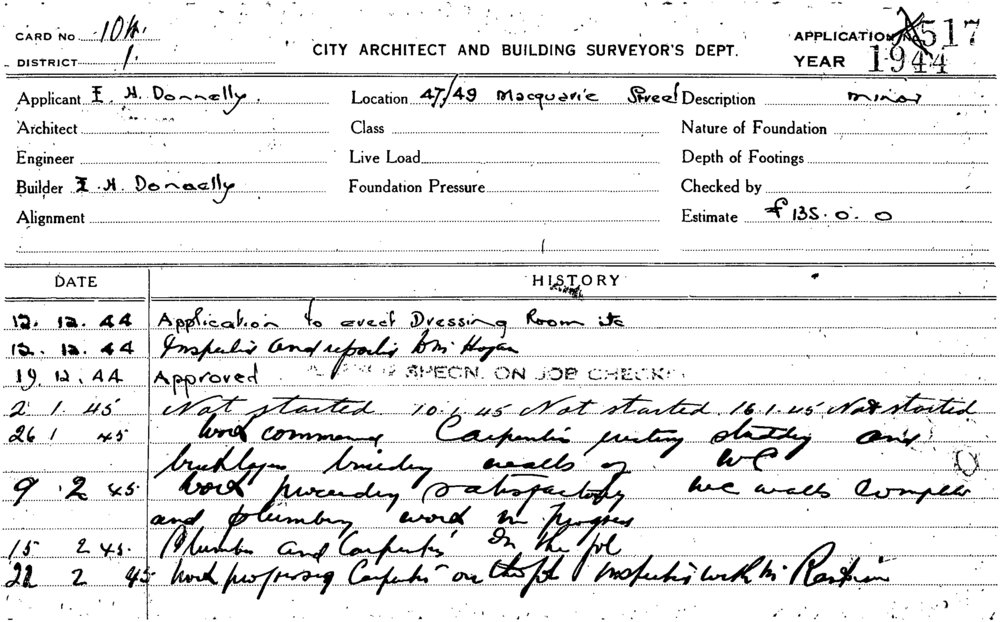 CARD No 10W. CITY ARCHITECT AND BUILDING SURVEYOR'S DEPT. APPLICATION No 517
DISTRICT 1. YEAR 1944
Applicant I. H. Donnelly. Location 47/49 Macquarie Street Description minor
Architect Class Nature of Foundation
Engineer Live Load Depth of Footings
Builder I. H. Donnelly Foundation Pressure Checked by
Alignment Estimate £135.0.0
DATE HISTORY
12. 12. 44 Application to erect Dressing Room etc
12. 12. 44 Inspected and reported Mr Hogan
19. 12. 44 Approved SPECN. ON JOB CHECK
2 1. 45 Not started 10.1.45 Not started. 16.1.45 Not started
26 1 45 Work commenced Carpenters erecting studding and
bricklayers building walls of WC
9 2 45 Work proceeding satisfactory WC walls complete
and plumbing work in progress
15 2 45. Plumber and Carpenters on the job
22 2 45 Work progressing Carpenters on the job Inspected with Mr